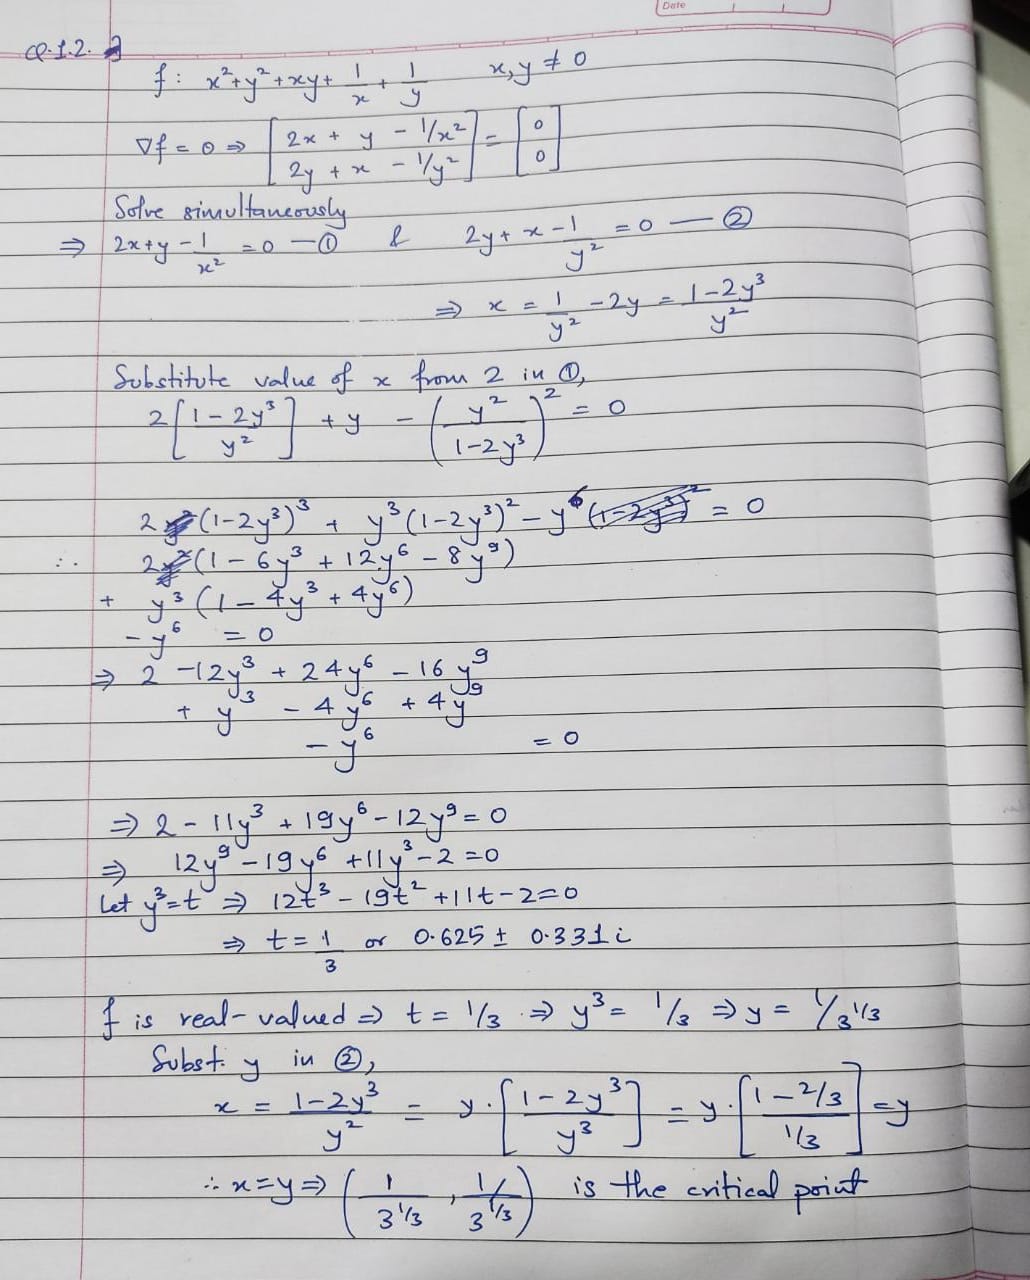 Date
Q.1.2.
f: x²+y²+xy+ 1/x + 1/y x,y ≠ 0
∇f = 0 ⇒ [2x + y - 1/x² 2y + x - 1/y²] = [0 0]
Solve simultaneously
⇒ 2x+y - 1/x² = 0 — ① & 2y + x - 1/y² = 0 — ②
⇒ x = 1/y² - 2y = (1-2y³)/y²
Substitute value of x from 2 in ①,
2[(1-2y³)/y²] + y - (y²/(1-2y³))² = 0
2(1-2y³)³ + y³(1-2y³)² - y⁶ = 0
∴ 2(1 - 6y³ + 12y⁶ - 8y⁹)
+ y³(1 - 4y³ + 4y⁶)
- y⁶ = 0
⇒ 2 - 12y³ + 24y⁶ - 16y⁹
+ y³ - 4y⁶ + 4y⁹
- y⁶ = 0
⇒ 2 - 11y³ + 19y⁶ - 12y⁹ = 0
⇒ 12y⁹ - 19y⁶ + 11y³ - 2 = 0
Let y³=t ⇒ 12t³ - 19t² + 11t - 2 = 0
⇒ t = 1/3 or 0.625 ± 0.331i
f is real-valued ⇒ t = 1/3 ⇒ y³ = 1/3 ⇒ y = 1/3^(1/3)
Subst. y in ②,
x = (1-2y³)/y² = y·[(1-2y³)/y³] = y·[(1-2/3)/(1/3)] = y
∴ x=y ⇒ (1/3^(1/3), 1/3^(1/3)) is the critical point